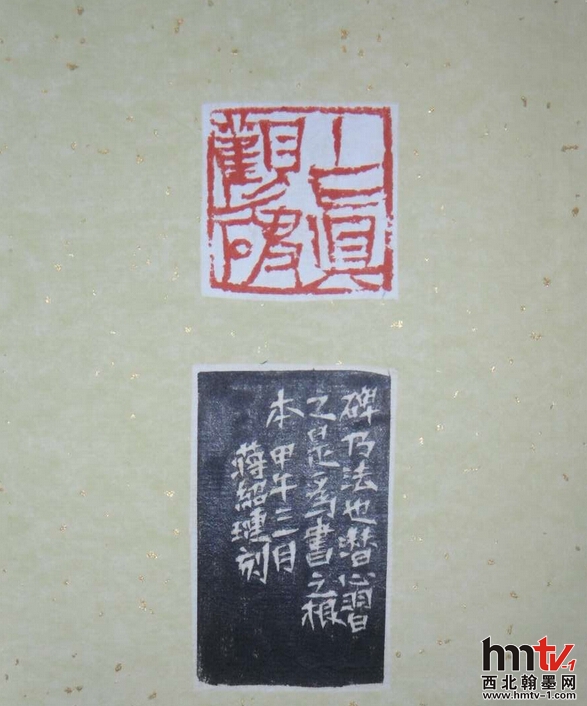 上真
觀碑
碑乃法也潛心習
之是為書之根
本甲午三月
蔣紹璉刻
hmtv-1
西北翰墨网
www.hmtv-1.com